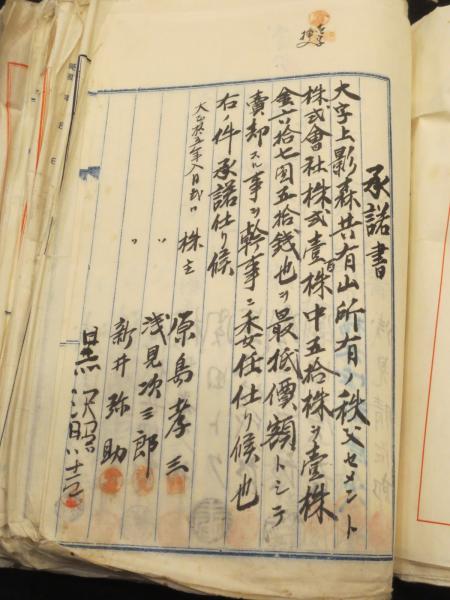 承諾書
大字上影森共有山所有ノ秩父セメント
株式會社株式壹百株中五拾株ヲ壹株
金六拾七圓五拾銭也ヲ最低價額トシテ
賣却スル事ヲ幹事ニ委任仕リ候也
右ノ件承諾仕リ候
大正拾五年八月弐日 株主
原島孝三
〃 〃 浅見次三郎
〃 新井弥助
黒沢照